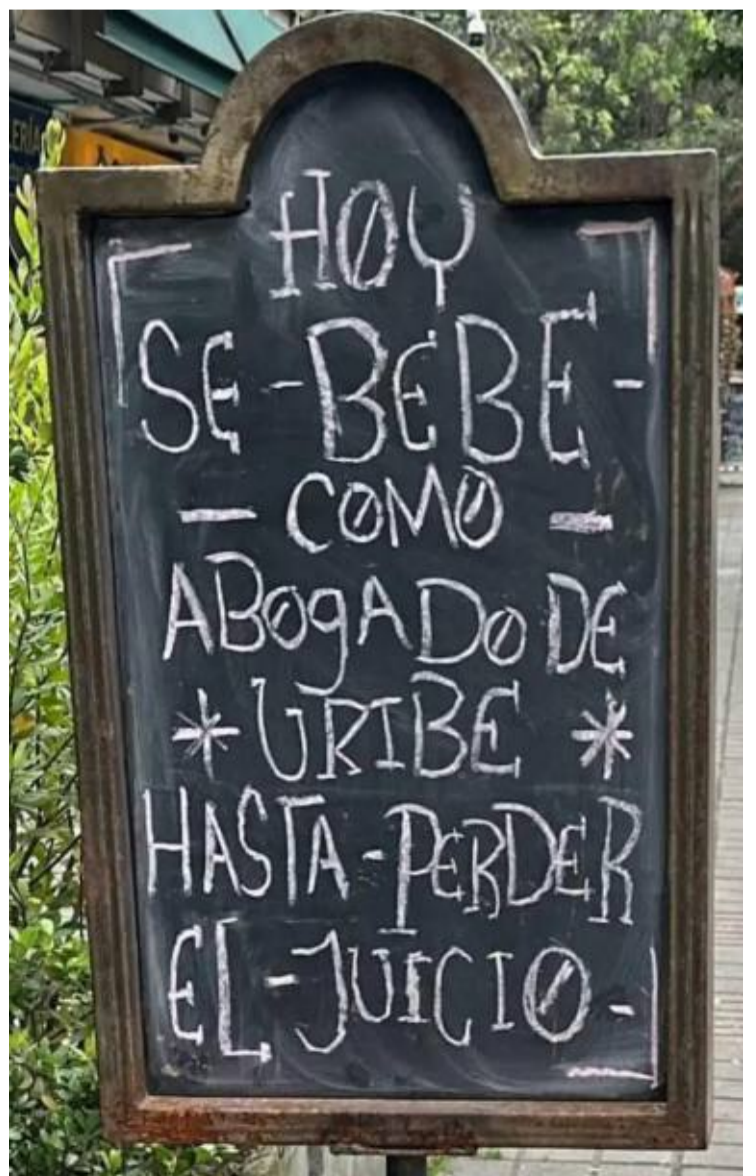 ERÍA
HOY
SE - BEBE -
- COMO -
ABOGADO DE
* URIBE *
HASTA - PERDER
EL - JUICIO -